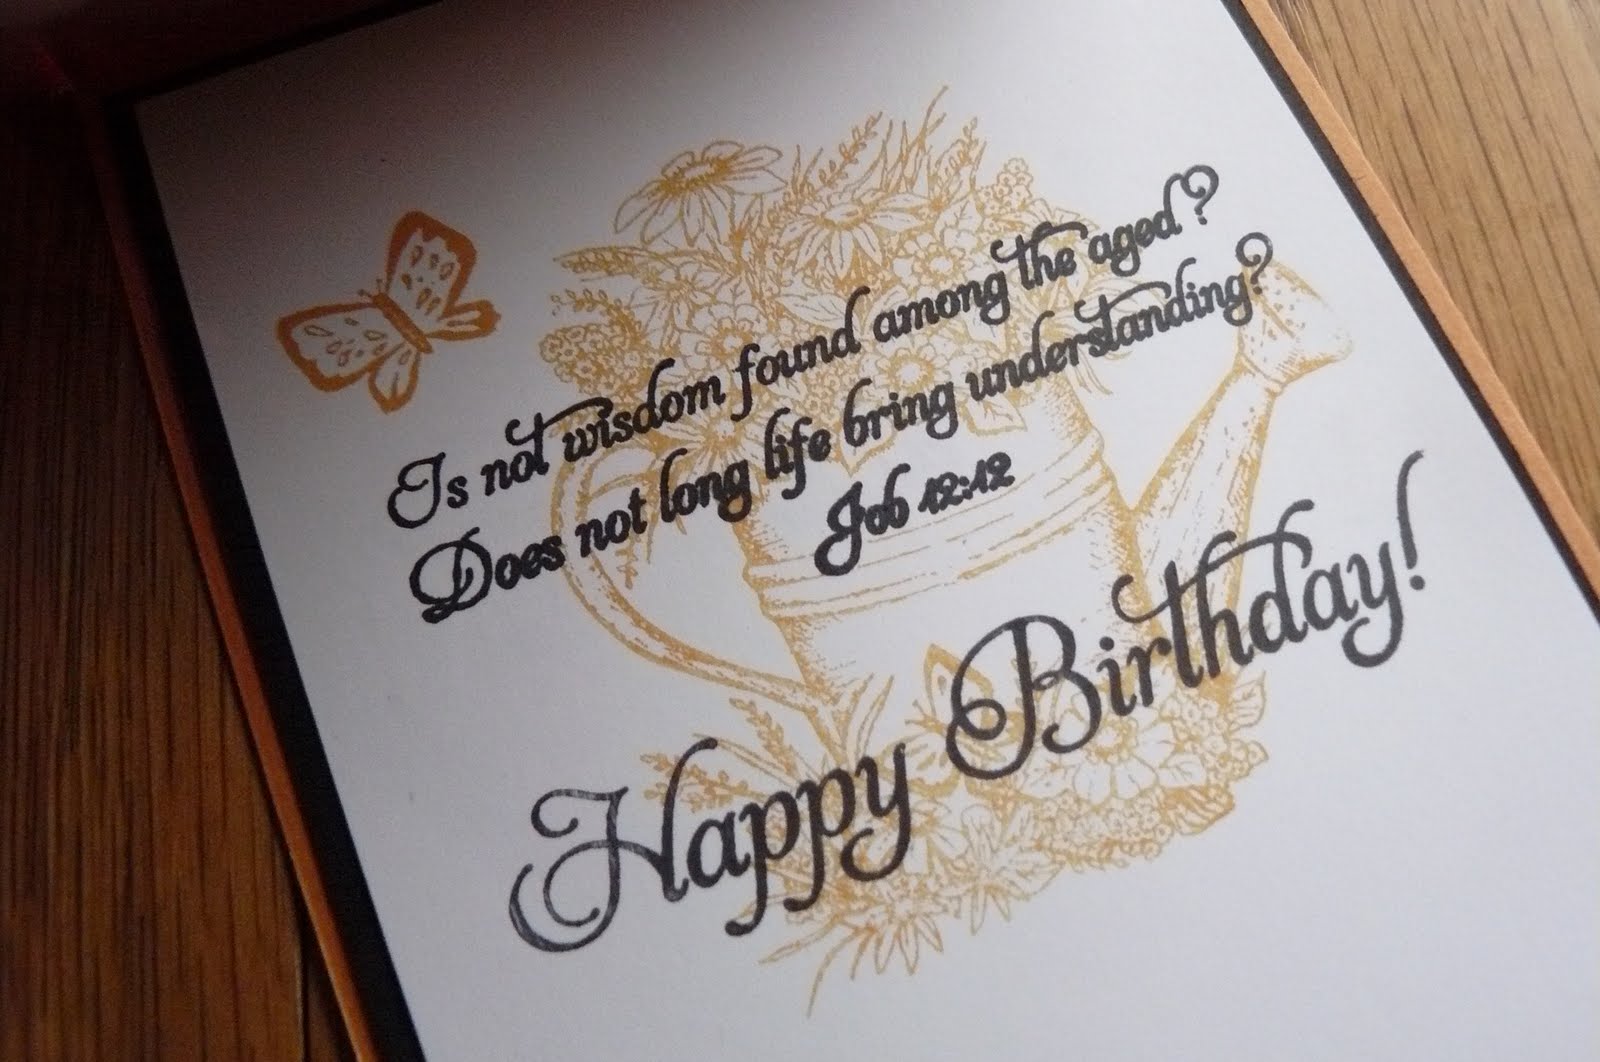 Is not wisdom found among the aged?
Does not long life bring understanding?
Job 12:12
Happy Birthday!